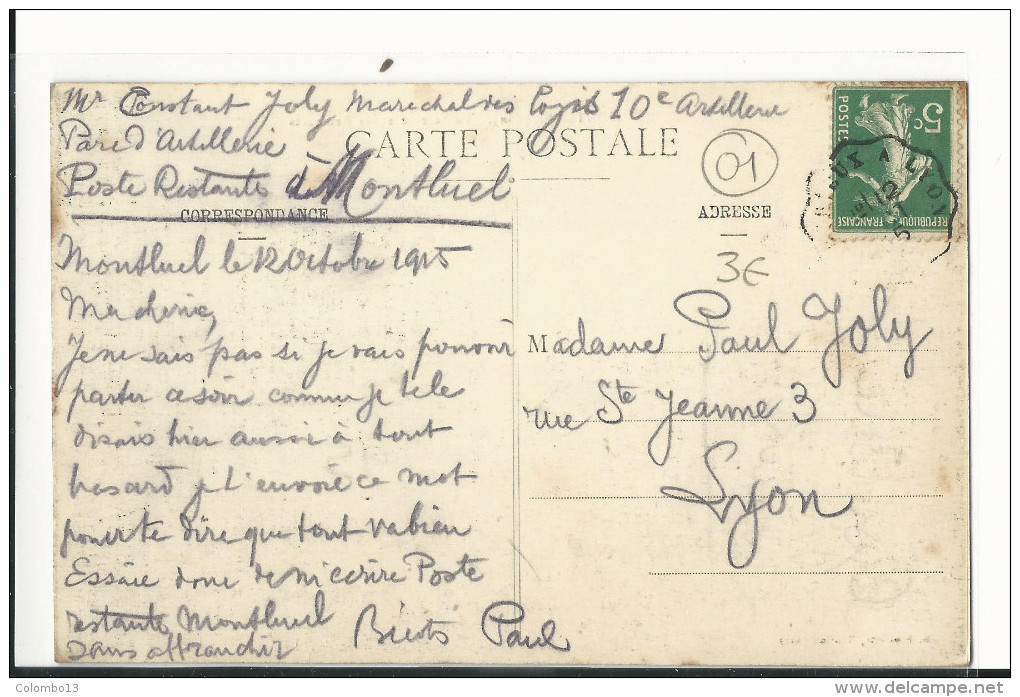 Mr Constant Joly Marechal des Logis 10e Artillerie
Parc d'Artillerie
Poste Restante à Montluel
CARTE POSTALE
CORRESPONDANCE
ADRESSE
01
3€
5c
POSTES
REPUBLIQUE FRANÇAISE
A LYON
12
Montluel le 12 Octobre 1915
Ma cherie,
Je ne sais pas si je vais pouvoir
partir ce soir comme je te le
disais hier aussi à tout
hasard je t'envoie ce mot
pour te dire que tout va bien
Essaie donc de m'ecrire Poste
restante Montluel
sans affranchir
Paul
Madame Paul Joly
rue Ste Jeanne 3
Lyon
Colombo13
delcampe.net